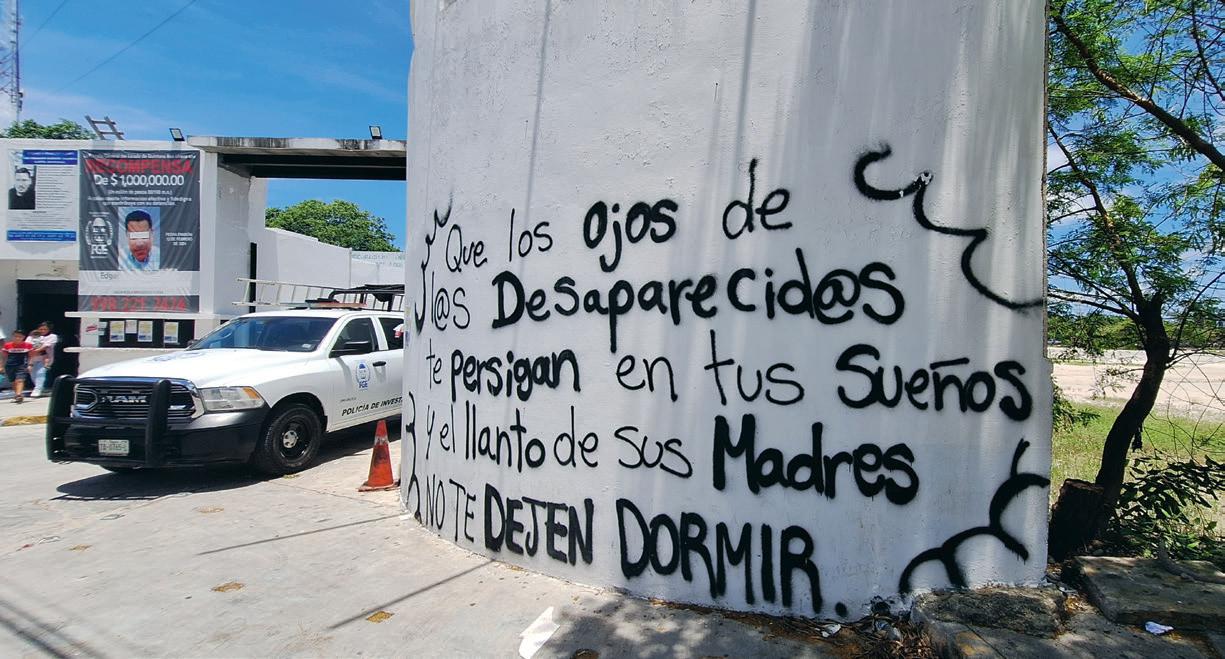 RECOMPENSA
De $1,000,000.00
FGE
Edgar
998 221 7424
RAM
FGE
POLICÍA DE INVEST
Que los Ojos de
l@s Desaparecid@s
te persigan en tus Sueños
y el llanto de sus Madres
NO TE DEJEN DORMIR.